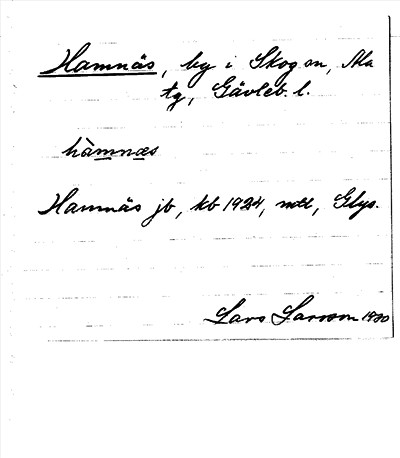 Hamnäs, by i Skog sn, Ala
tg, Gävleb. l.
hàmnæs
Hamnäs jb, kb 1924, mtl, Glys.
Lars Larsson 1930